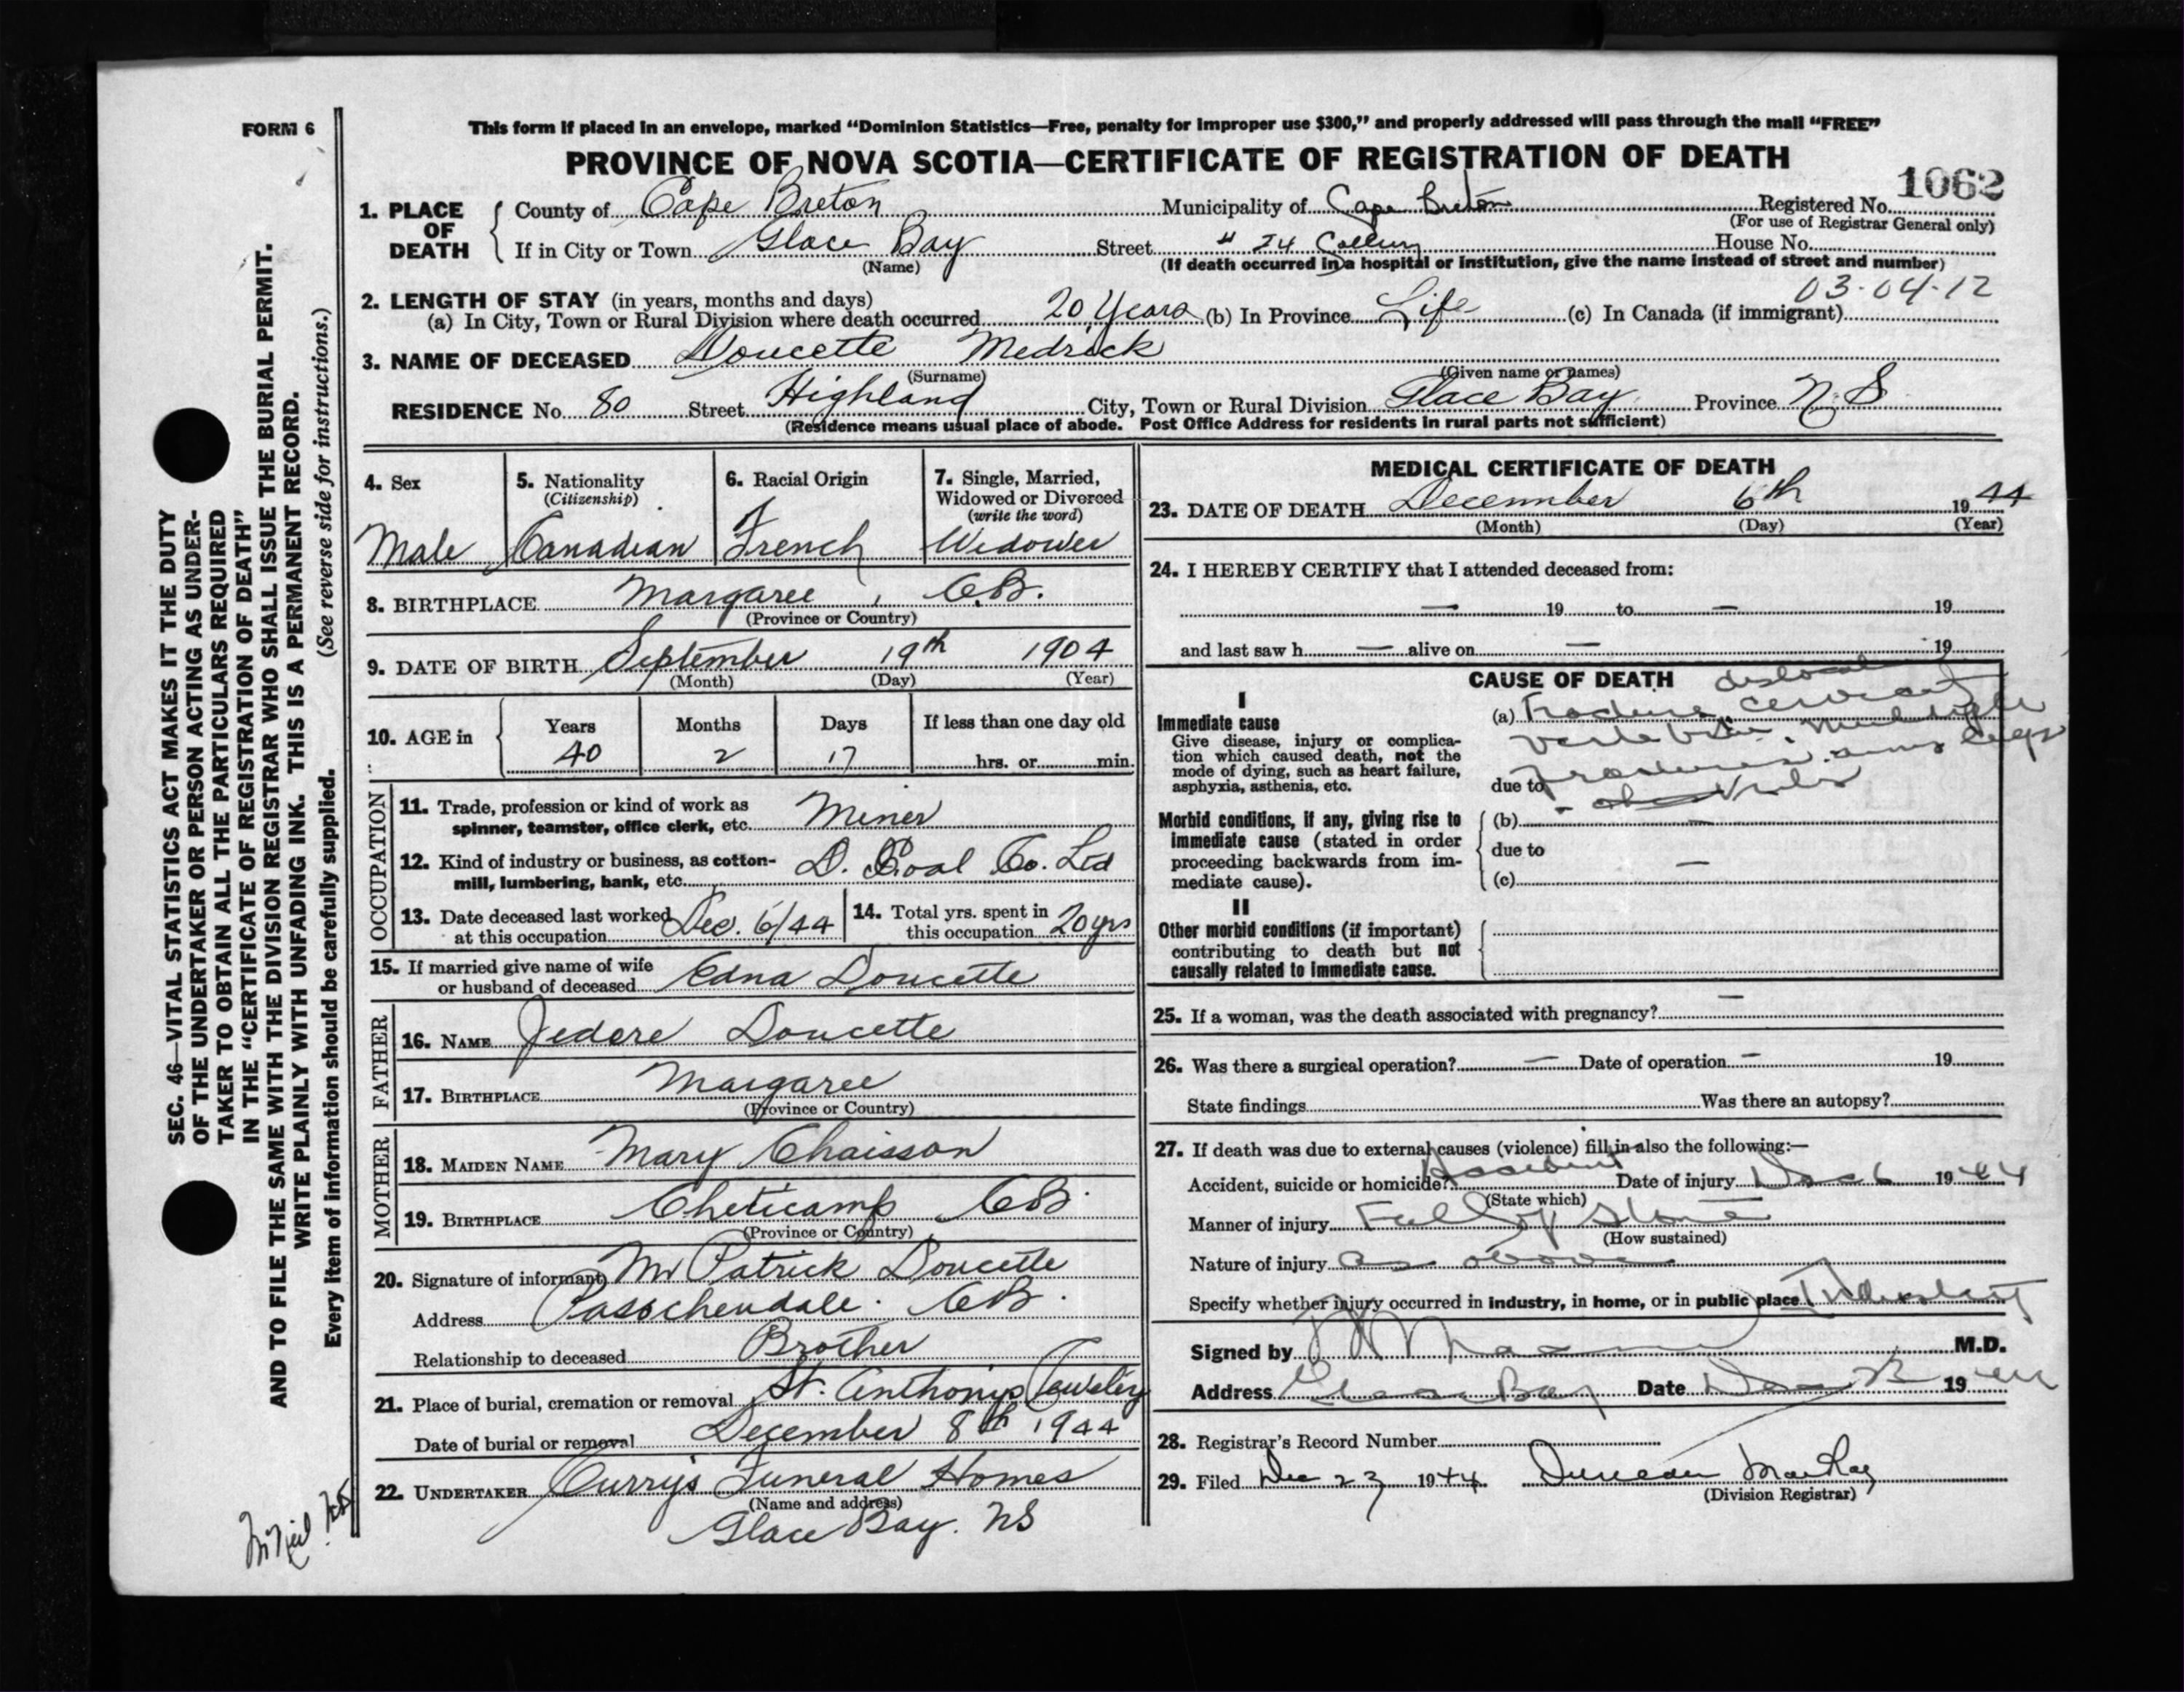 FORM 6
This form if placed in an envelope, marked “Dominion Statistics—Free, penalty for improper use $300,” and properly addressed will pass through the mail “FREE”
PROVINCE OF NOVA SCOTIA—CERTIFICATE OF REGISTRATION OF DEATH
1062
1. PLACE OF DEATH { County of Cape Breton Municipality of Cape Breton Registered No.
(For use of Registrar General only)
If in City or Town Glace Bay Street # 24 Colliery House No.
(Name) (If death occurred in a hospital or institution, give the name instead of street and number)
03-04-12
2. LENGTH OF STAY (in years, months and days)
(a) In City, Town or Rural Division where death occurred 20 Years (b) In Province Life (c) In Canada (if immigrant)
3. NAME OF DECEASED Doucette Medrick
(Surname) (Given name or names)
RESIDENCE No. 80 Street Highland City, Town or Rural Division Glace Bay Province N S
(Residence means usual place of abode. Post Office Address for residents in rural parts not sufficient)
4. Sex 5. Nationality (Citizenship) 6. Racial Origin 7. Single, Married, Widowed or Divorced (write the word)
Male Canadian French Widower
8. BIRTHPLACE Margaree, C.B.
(Province or Country)
9. DATE OF BIRTH September 19th 1904
(Month) (Day) (Year)
10. AGE in { Years Months Days If less than one day old
40 2 17 hrs. or min.
OCCUPATION
11. Trade, profession or kind of work as
spinner, teamster, office clerk, etc. Miner
12. Kind of industry or business, as cotton-
mill, lumbering, bank, etc. D. Coal Co. Ltd
13. Date deceased last worked at this occupation Dec. 6/44 14. Total yrs. spent in this occupation 20 yrs
15. If married give name of wife
or husband of deceased Edna Doucette
FATHER
16. NAME Jedore Doucette
17. BIRTHPLACE Margaree
(Province or Country)
MOTHER
18. MAIDEN NAME Mary Chaisson
19. BIRTHPLACE Cheticamp CB.
(Province or Country)
20. Signature of informant Mr Patrick Doucette
Address Passchendale. CB.
Relationship to deceased Brother
21. Place of burial, cremation or removal St. Anthonys
Date of burial or removal December 8th 1944
22. UNDERTAKER Curry's Funeral Homes
(Name and address)
Glace Bay. NS
MEDICAL CERTIFICATE OF DEATH
23. DATE OF DEATH December 6th 1944
(Month) (Day) (Year)
24. I HEREBY CERTIFY that I attended deceased from:
— 19 to — 19
and last saw h — alive on — 19
CAUSE OF DEATH
I
Immediate cause
Give disease, injury or complica-
tion which caused death, not the
mode of dying, such as heart failure,
asphyxia, asthenia, etc.
(a) Fracture cervical
vertebrae. Multiple
due to fractures. arms legs
Morbid conditions, if any, giving rise to
immediate cause (stated in order
proceeding backwards from im-
mediate cause).
(b) —
due to
(c) —
II
Other morbid conditions (if important)
contributing to death but not
causally related to immediate cause.
25. If a woman, was the death associated with pregnancy? —
26. Was there a surgical operation? — Date of operation — 19
State findings Was there an autopsy?
27. If death was due to external causes (violence) fill in also the following:—
Accident, suicide or homicide? Accident Date of injury Dec 6 1944
(State which)
Manner of injury Fall of Stone
(How sustained)
Nature of injury as above
Specify whether injury occurred in industry, in home, or in public place
Signed by M.D.
Address Glace Bay Date Dec 19
28. Registrar's Record Number
29. Filed Dec 23 1944 Duncan MacKay
(Division Registrar)
SEC. 46—VITAL STATISTICS ACT MAKES IT THE DUTY
OF THE UNDERTAKER OR PERSON ACTING AS UNDER-
TAKER TO OBTAIN ALL THE PARTICULARS REQUIRED
IN THE “CERTIFICATE OF REGISTRATION OF DEATH”
AND TO FILE THE SAME WITH THE DIVISION REGISTRAR WHO SHALL ISSUE THE BURIAL PERMIT.
WRITE PLAINLY WITH UNFADING INK. THIS IS A PERMANENT RECORD.
Every item of information should be carefully supplied. (See reverse side for instructions.)